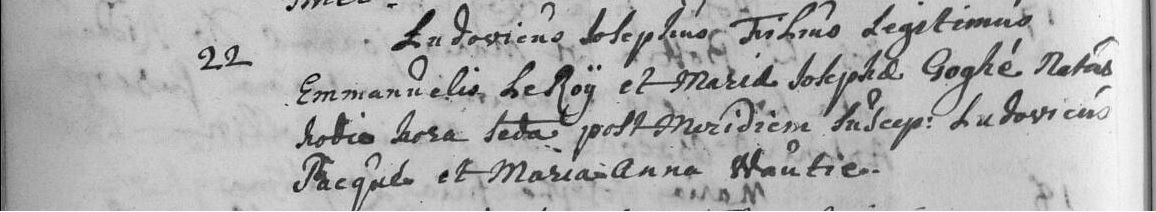 22 Ludovicus Josephus Filius Legitimus
Emmanuelis Le Roÿ et Mariæ Josephæ Goghé Natus
hodie hora post Meridiem suscep: Ludovicus
Pacqué et Maria Anna Wautie.